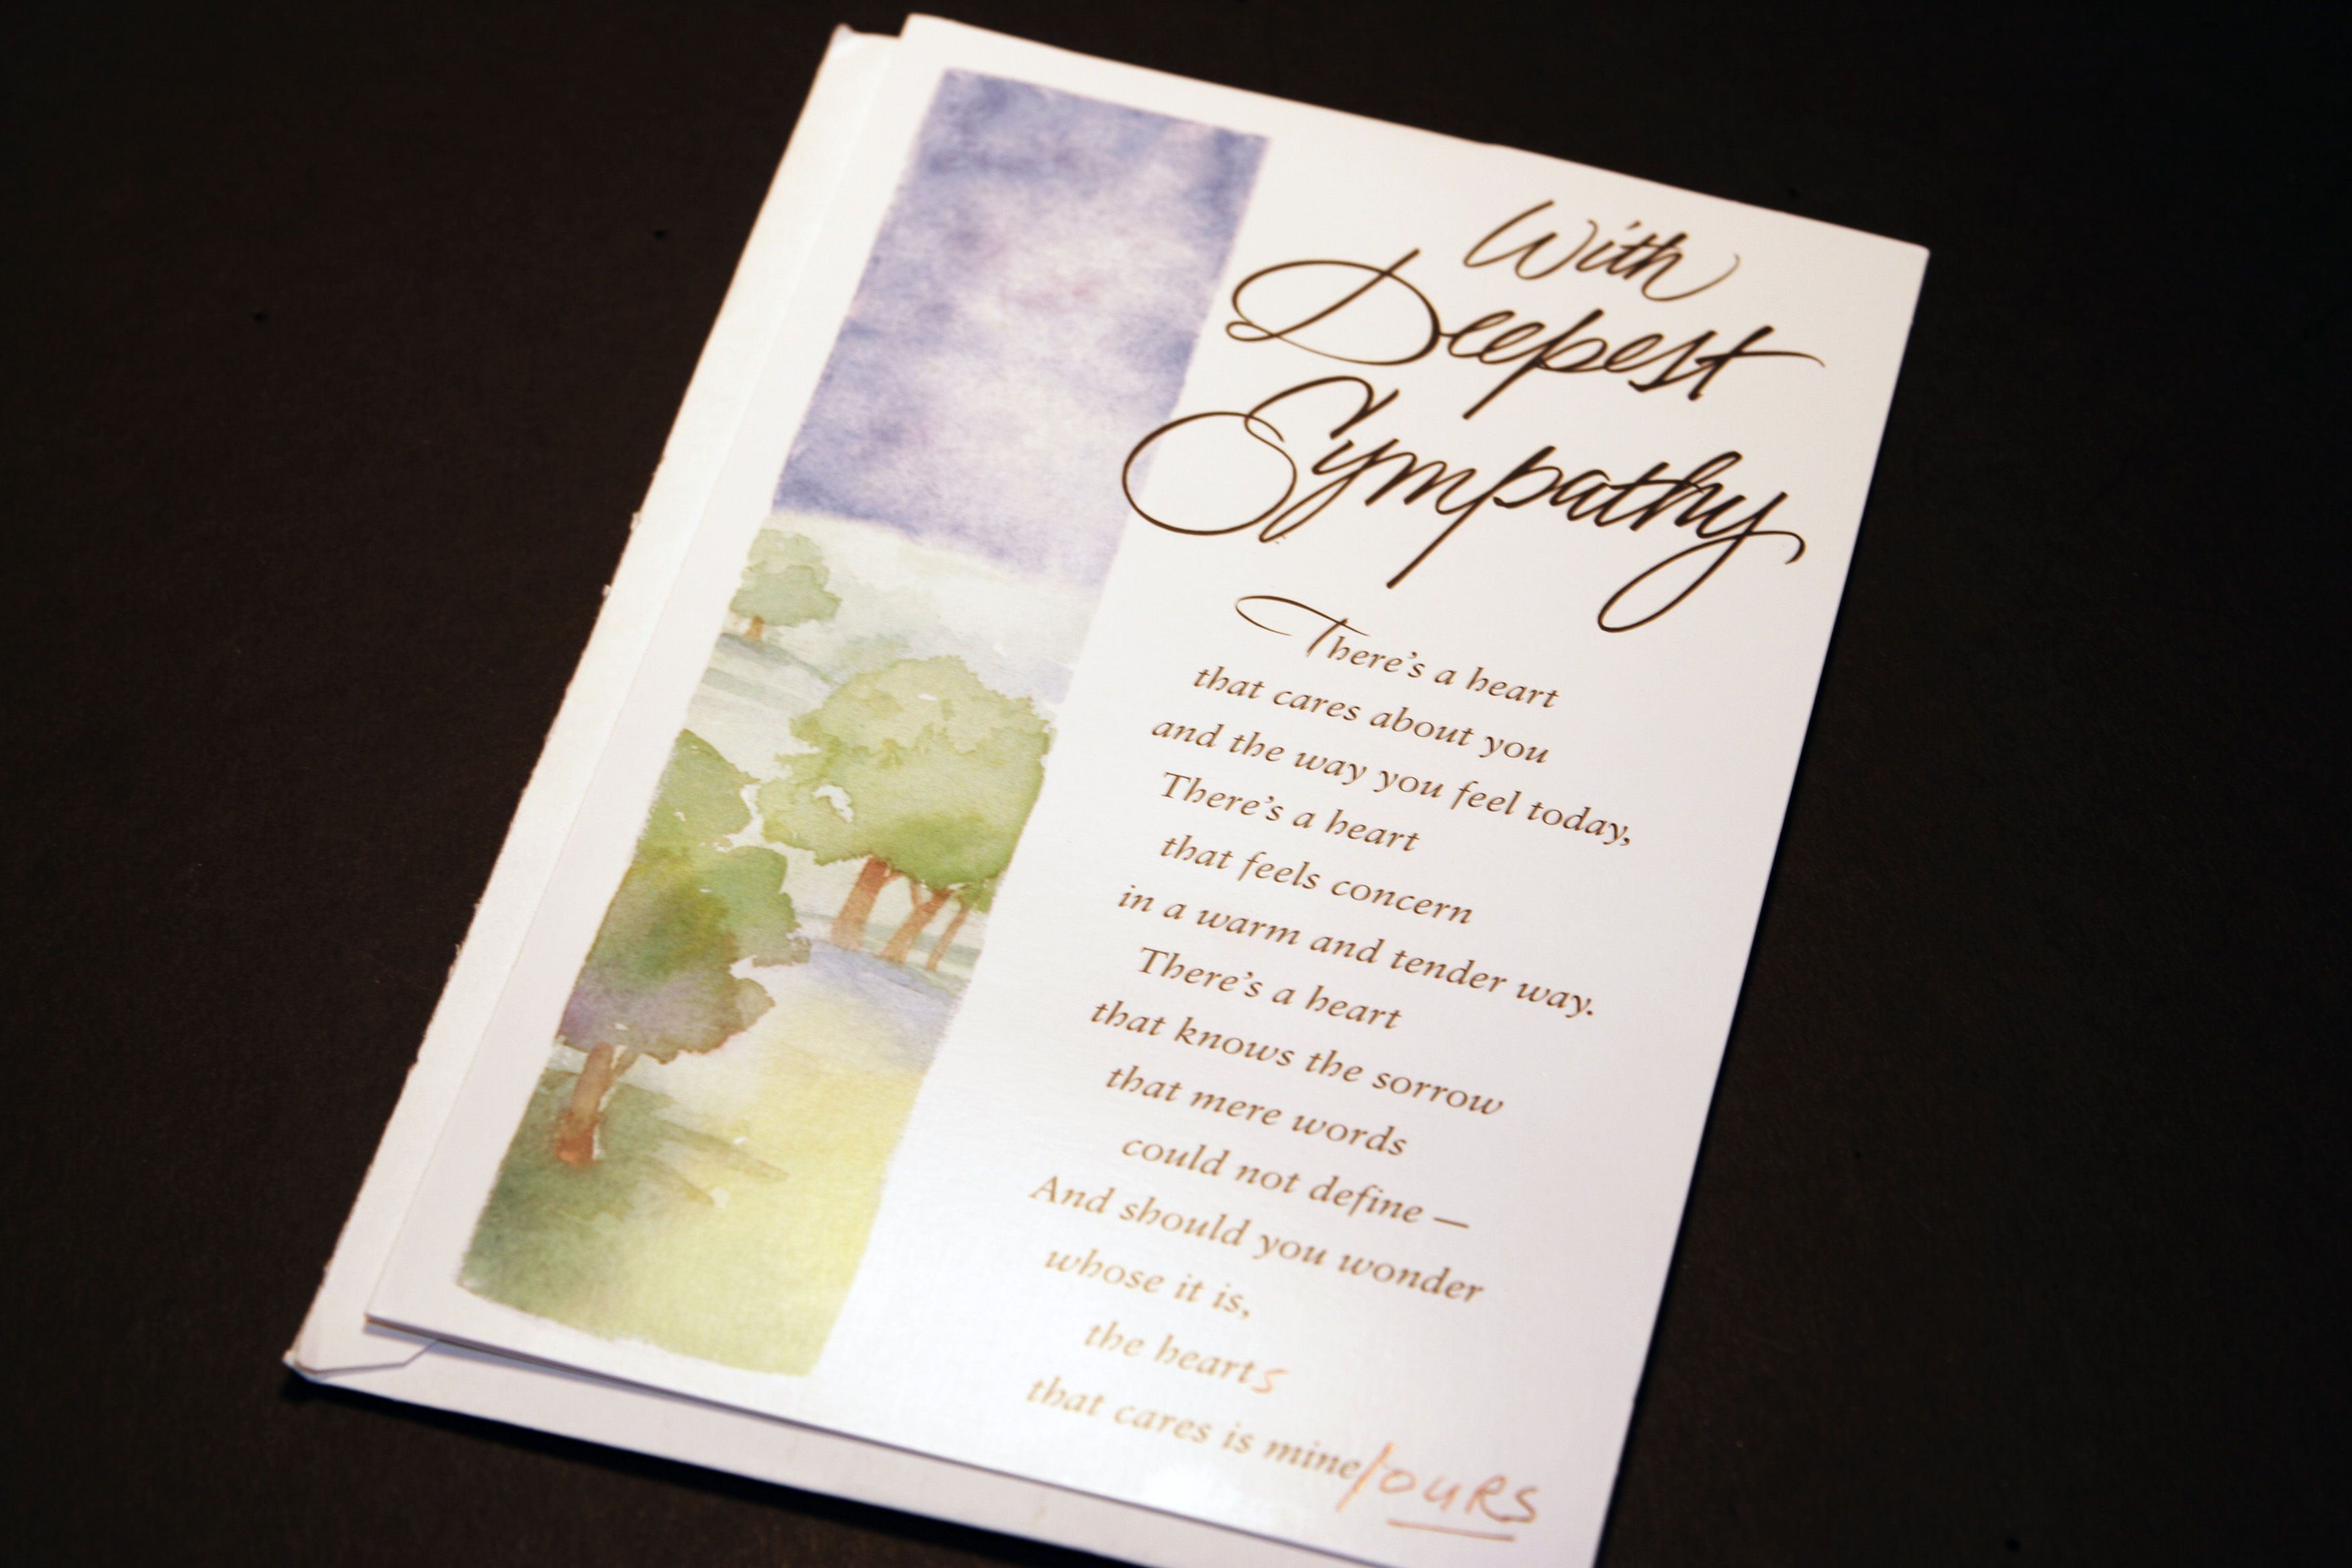 With
Deepest
Sympathy
There's a heart
that cares about you
and the way you feel today,
There's a heart
that feels concern
in a warm and tender way.
There's a heart
that knows the sorrow
that mere words
could not define —
And should you wonder
whose it is,
the hearts
that cares is mine/OURS